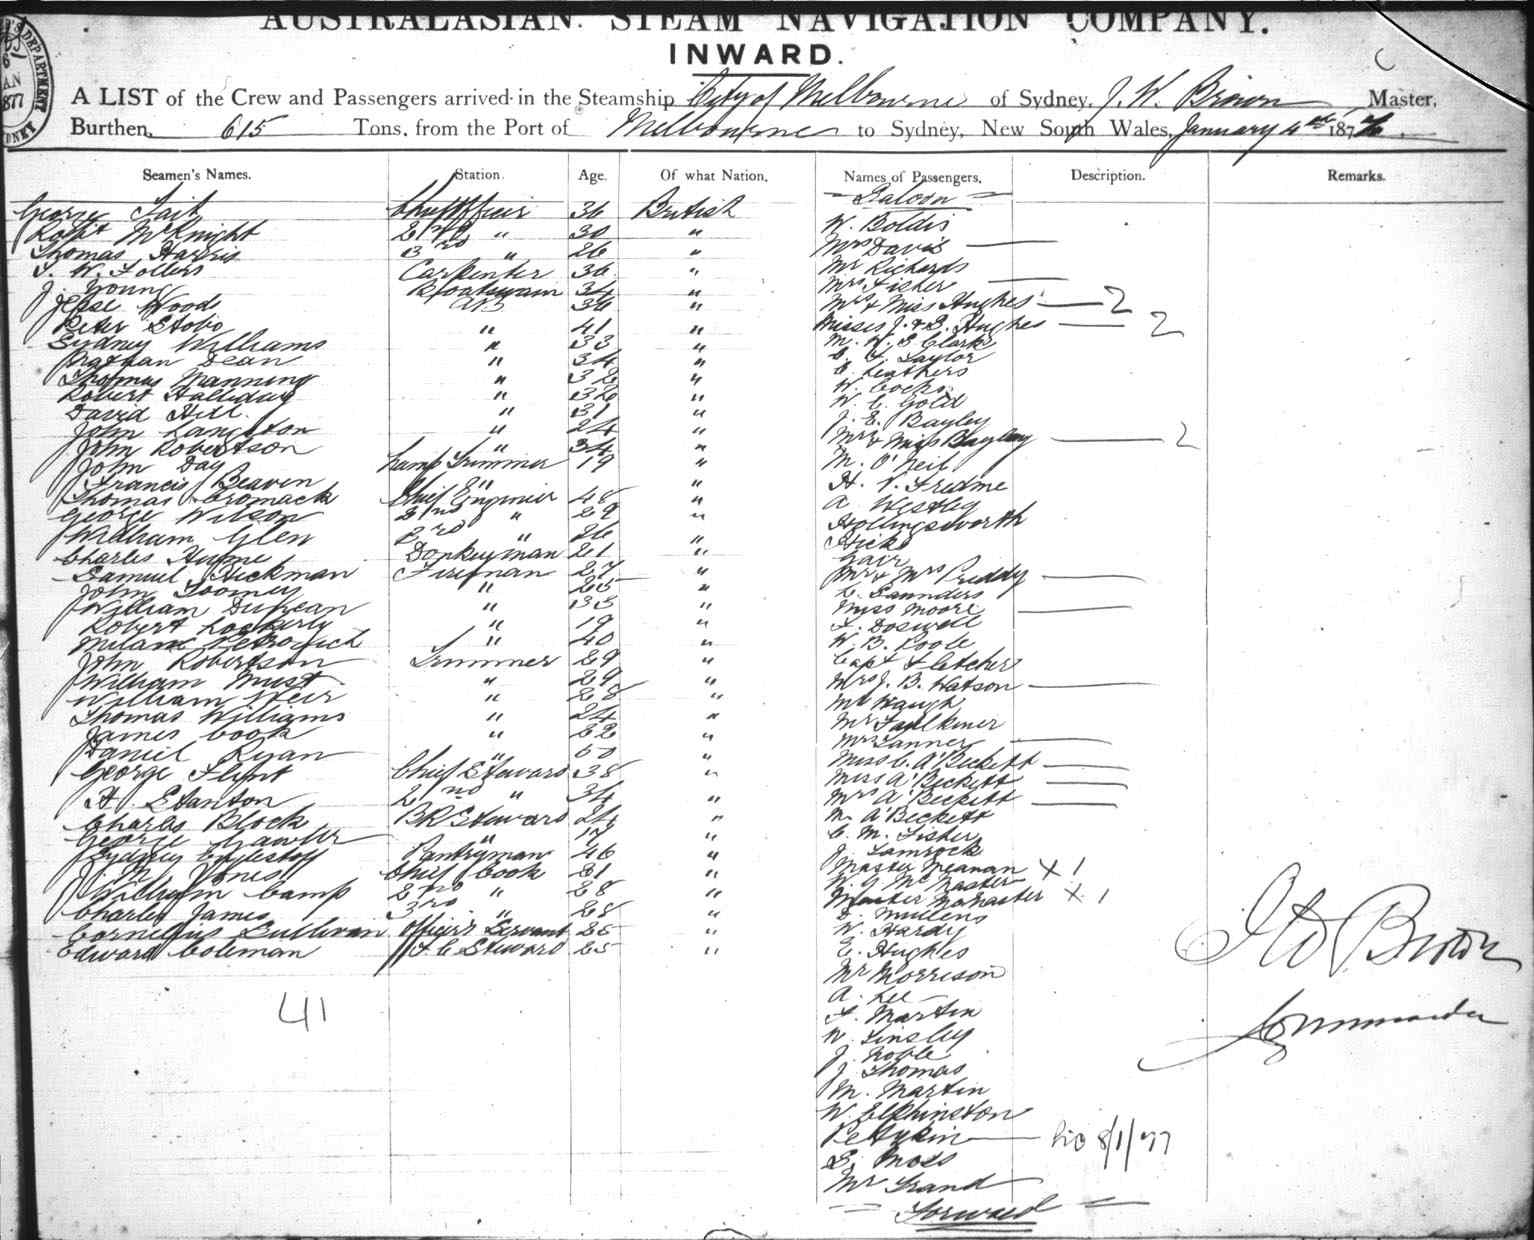 AUSTRALASIAN STEAM NAVIGATION COMPANY.
INWARD.
A LIST of the Crew and Passengers arrived in the Steamship City of Melbourne of Sydney, J. W. Brown Master,
Burthen, 615 Tons, from the Port of Melbourne to Sydney, New South Wales, January 4th 187
Seamen's Names. Station. Age. Of what Nation. Names of Passengers. Description. Remarks.
Saloon
George Tait Chief Officer 36 British
Robt McKnight 2nd " 30 "
Thomas Harris 3rd " 26 "
Carpenter 36 "
J. Young Boatswain 34 "
Jesse Wood AB 36 "
Peter Stobo " 41 "
Sydney Williams " 33 "
Nathan Dean " 34 "
Thomas Manning " "
Robert Halliday " "
David Hill " 31 "
John Langston " 24 "
John Robertson " 34 "
John Day Lamp Trimmer 19 "
Francis Beaven " "
Thomas Cromack Chief Engineer 48 "
George Wilson 2nd " 29 "
William Glen " 26 "
Charles Hume Donkeyman 21 "
Samuel Hickman Fireman 27 "
John Toomey " 25 "
William Duncan " 33 "
Robert Lockerly " 19 "
" 40 "
John Robertson Trimmer 29 "
William Must " 29 "
William Weir " 28 "
Thomas Williams " 24 "
James Cook " "
Daniel Ryan " "
George Flynt Chief Steward 38 "
H. Stanton 2nd " 34 "
Charles Block BR Steward 24 "
George Lawler " "
Sydney Pantryman 46 "
J. M. Jones Chief Cook 21 "
William Camp 2nd " 28 "
Charles James 3rd " 28 "
Cornelius Sullivan Officers Servant 25 "
Edward Coleman F. C. Steward 25 "
41
W. Boldis
Mrs Davis
Mr Richards
Mrs Fisher
Mrs & Miss Hughes 2
Misses J. & B. Hughes 2
M. W. S Clark
C. F. Taylor
C. Leathers
W. Cocks
W. C. Gold
J. E. Bayley
Mrs & Miss Bayley 2
M. O'Neil
H. V.
A Westley
Hollingsworth
Hicks
Gair
Mr & Mrs Priddy
Saunders
Miss Moore
F. Doswell
W. B. Poole
Capt Fletcher
Mrs J. B. Watson
Mr Waugh
Mr Faulkiner
Mrs Tanner
Miss C. A'Beckett
Miss A'Beckett
Mrs A'Beckett
M. A'Beckett
C. M. Fisher
J. Lamrock
Master Meanan X 1
McMaster
Master McMaster X 1
D. Mullens
W. Hardy
C. Hughes
Mr Morrison
A. Lee
F. Martin
W. Linsley
J. Noble
J. Thomas
M. Martin
W. Elphinston
8/1/77
S. Moss
Mr Frand
Forward
J W Brown
Commander